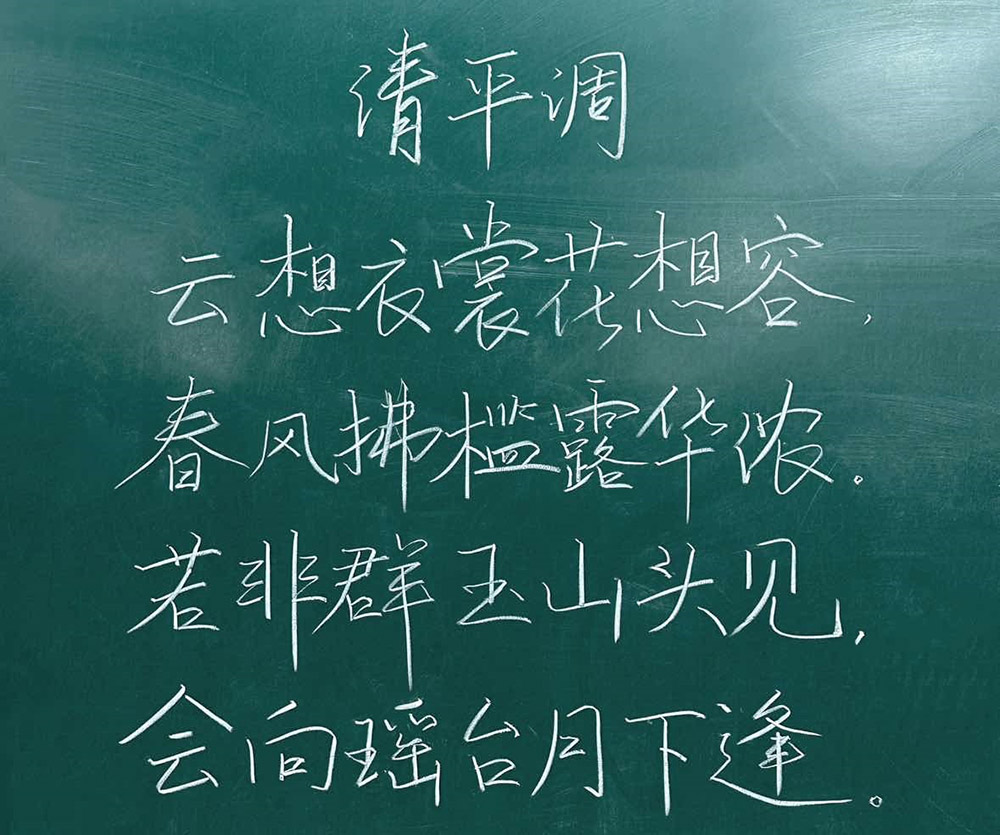 清平调
云想衣裳花想容,
春风拂槛露华浓。
若非群玉山头见,
会向瑶台月下逢。